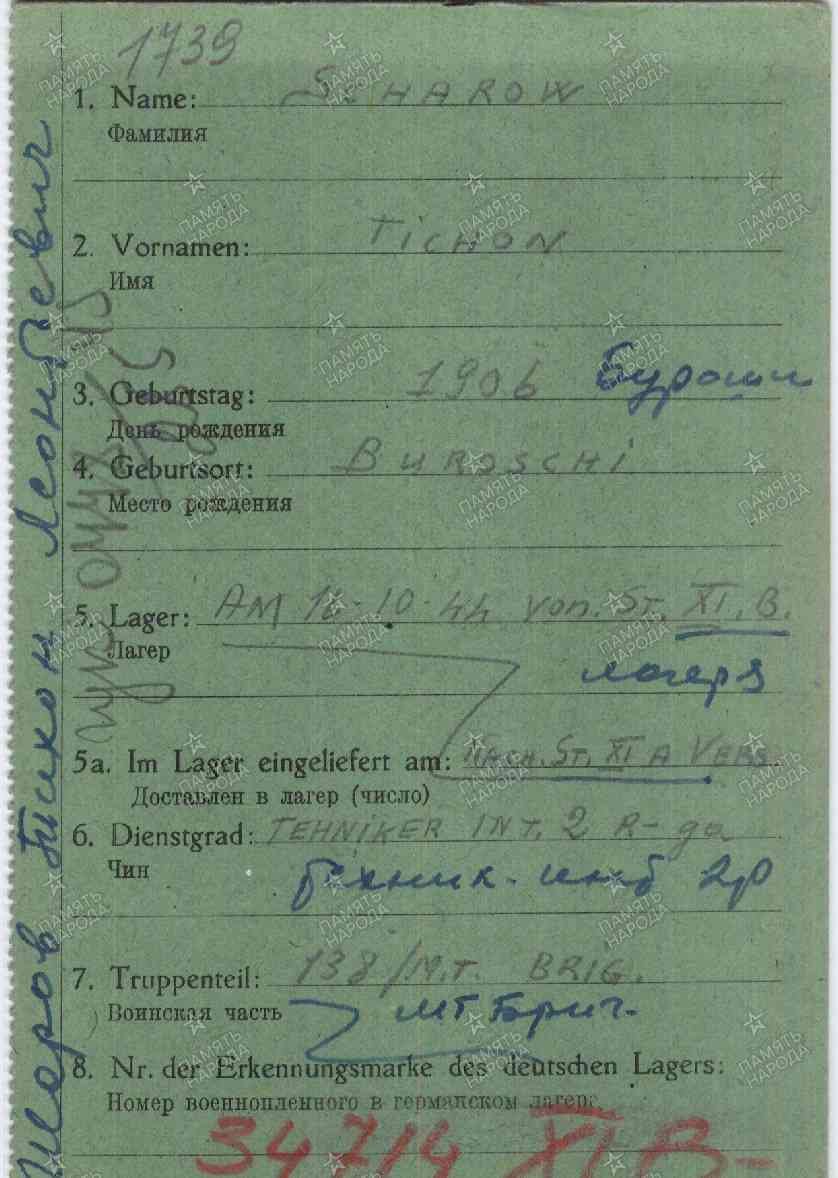 1739
1. Name: SCHAROW
Фамилия
2. Vornamen: TICHON
Имя
3. Geburtstag: 1906 Буроши
День рождения
4. Geburtsort: BUROSCHI
Место рождения
5. Lager: AM 16-10-44 von. ST. XI. B.
Лагер
лагеря
5a. Im Lager eingeliefert am: NACH. ST. XI A VERS.
Доставлен в лагер (число)
6. Dienstgrad: TEHNIKER INT. 2 R-ga
Чин
техник. инт 2р
7. Truppenteil: 138/M.T. BRIG.
Воинская часть мт Бриг.
8. Nr. der Erkennungsmarke des deutschen Lagers:
Номер военнопленного в германском лагере:
34714 XI B-
Шеров Тихон Леонтьевич
ПАМЯТЬ НАРОДА